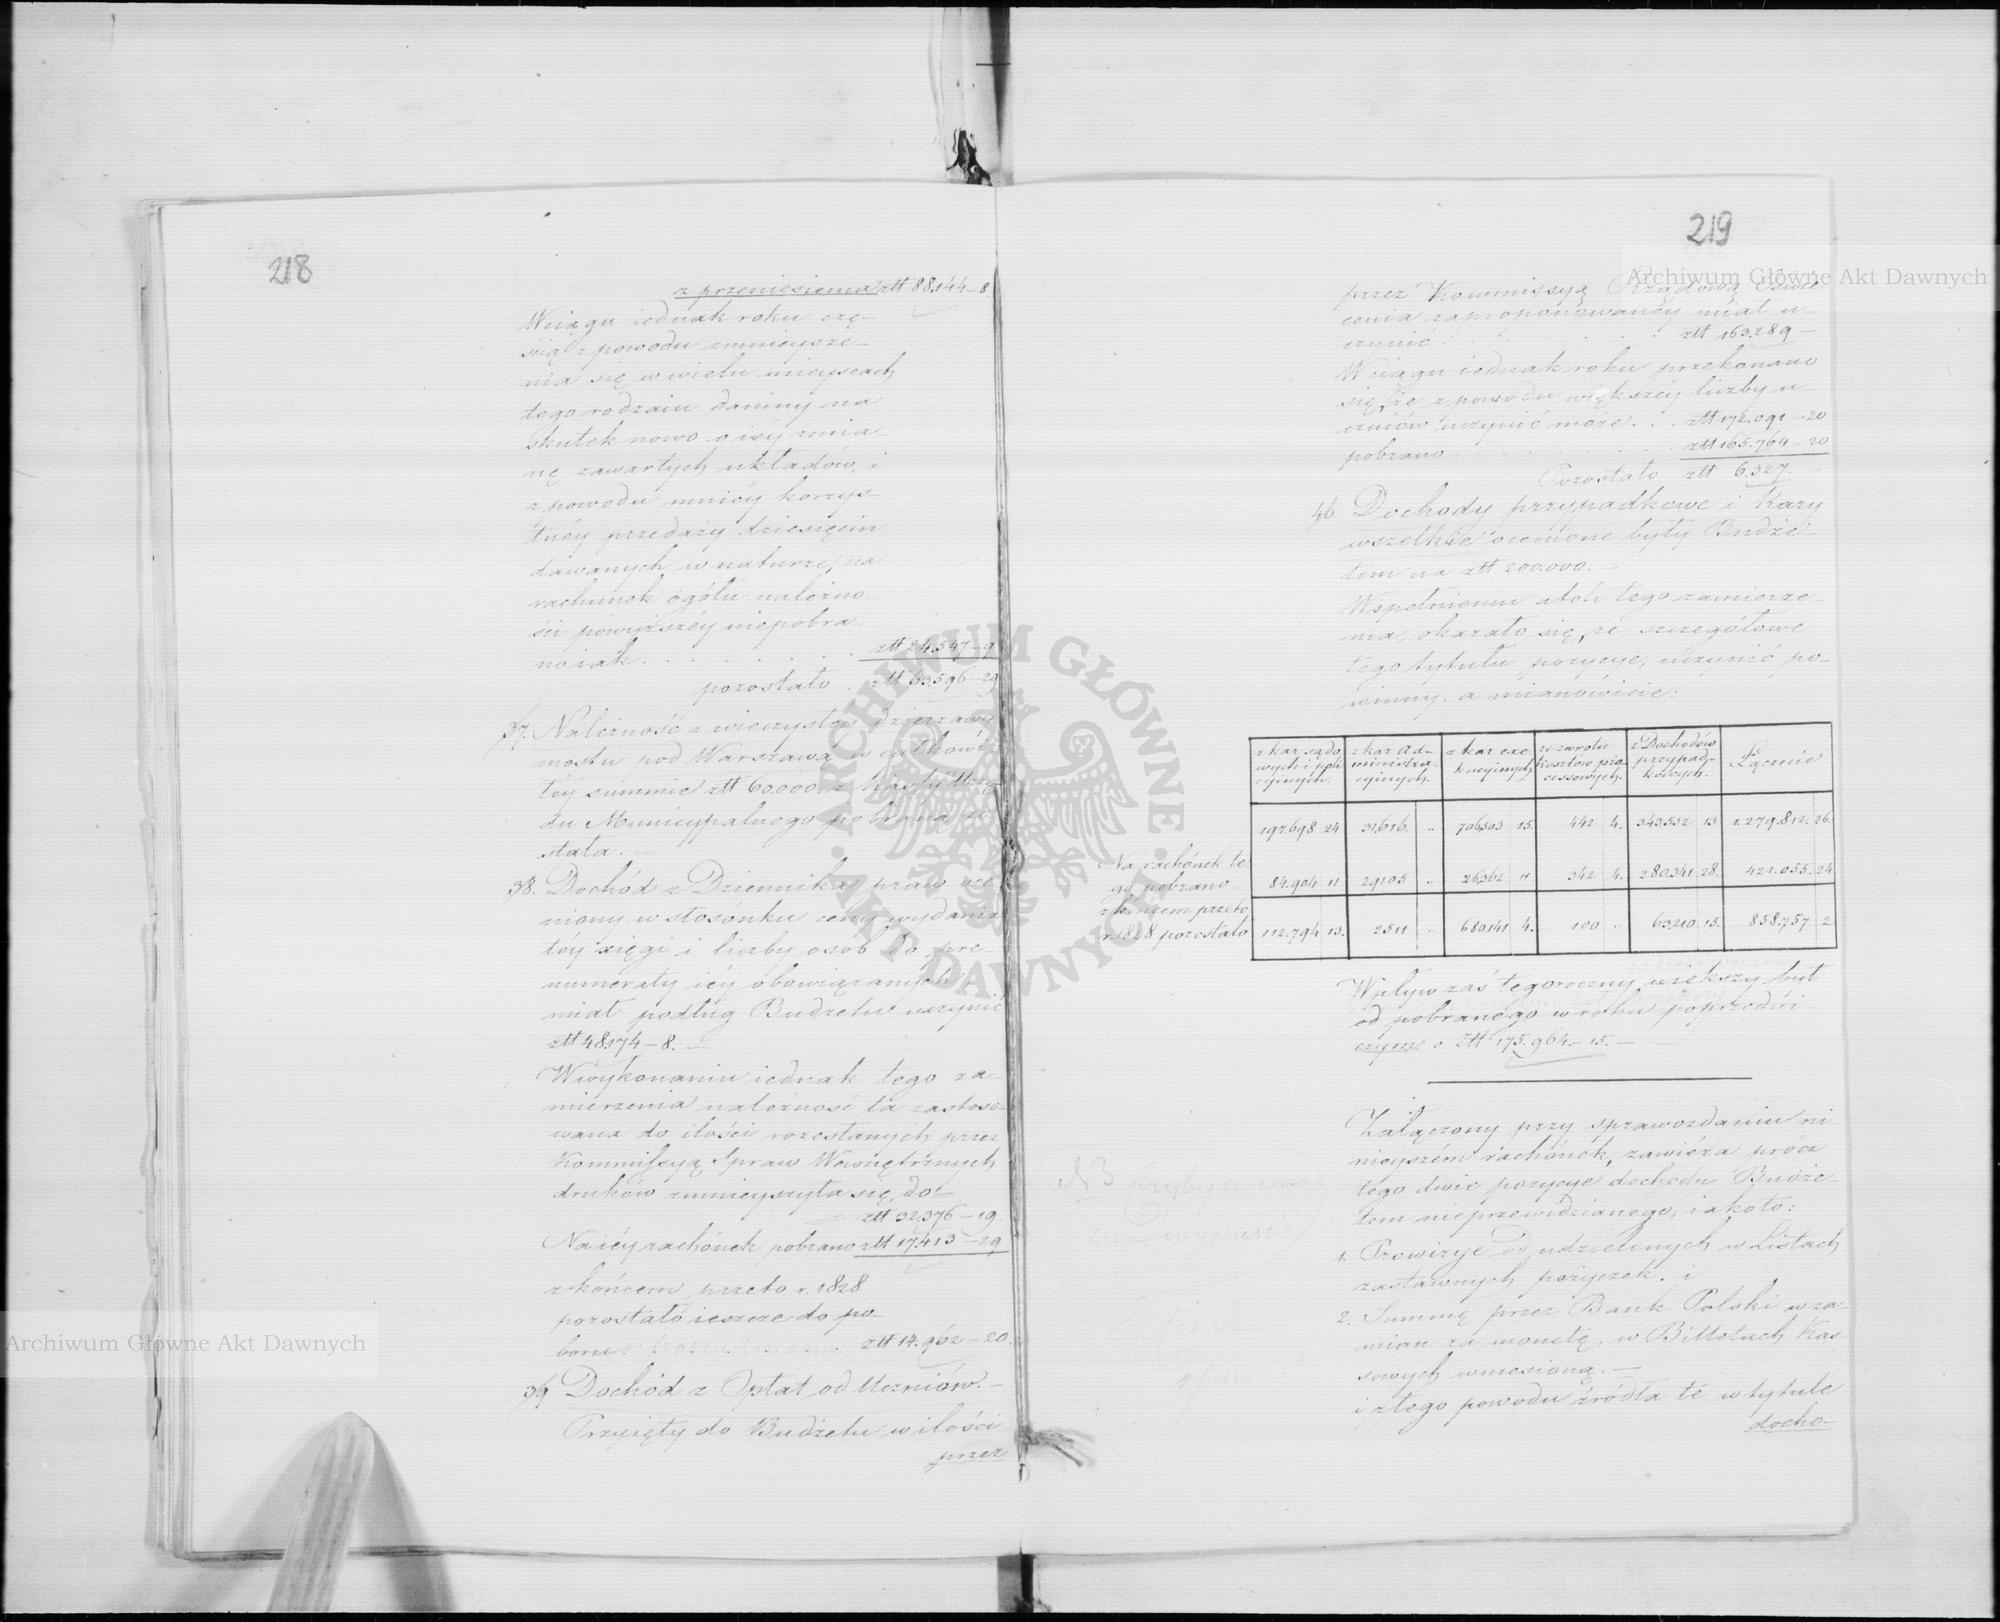 218
z przeniesienia złt 88,144–8.
W ciągu iednak roku czę-
ścią z powodu zmnieysze-
nia się w wielu mieyscach
tego rodzaiu daniny na
skutek nowo o iéy zmia-
nę zawartych układów, i
z powodu mniéy korzys-
tnéy przedaży dziesięcin
dawanych w naturze, na
rachunek ogółu należno-
ści powyższéy niepobra-
no iak . . . . . . . złt 24,547–9
pozostało . złt 63,596–29
37. Należność z wieczystéy dzierzawy
mostu pod Warszawą w całkowi-
téy summie złt 60.000. z Kassy Urzę-
du Municypalnego pobraną zo-
stała.—
38. Dochód z Dziennika praw oce-
niony w stosónku ceny wydania
téy xięgi i liczby osób do pre-
numeraty iéy obowiązanych
miał podług Budżetu uczynić
złt 48,174–8.—
W wykonaniu iednak tego za-
mierzenia należność ta zastoso-
wana do ilości rozesłanych przez
Kommissyą Spraw Wewnętrznych
druków zmnieyszyła się do
złt 32,376–19.
Na iéy rachónek pobrano złt 17,413–29
z końcem przeto r. 1828
pozostało ieszcze do po-
boru . złt 14.962–20.
39 Dochód z Opłat od Uczniów.—
Przyięty do Budżetu w ilości
przez
219
przez Kommissyą Rządową Oświe-
cenia zaproponowanéy miał u-
czynić . . . . . . złt 163.289—
W ciągu iednak roku przekonano
się, że z powodu większéy liczby u-
czniów uczynić może . . . złt 172.091–20
pobrano . . . . . . złt 165.764–20
Pozostało złt 6.327.—
40 Dochody przypadkowe i Kary
wszelkie ocenione były Budże-
tem na złt 200.000.—
W spełnieniu atoli tego zamierze-
nia, okazało się, że szczegółowe
tego tytułu pozycye, uczynić po-
winny, a mianowicie:
z kar sądo-
wych i poli-
cyinych. z kar Ad-
ministra-
cyinych. z kar exe-
kucyinych ze zwrotu
kosztów pro-
cessowych. z Dochodów
przypad-
kowych. Łącznie
197.698 24 31.616. .. 706,503 15. 442 4. 343.552 13 1.279.812. 26.
Na rachónek te-
go pobrano. 84.904 11 29105 .. 26362 11 342 4. 280.341 28. 421.055. 24
z końcem przeto
r. 1828 pozostało 112.794 13. 2511 .. 680141 4. 100 .. 63,210 15. 858.757. 2
Wpływ zaś tegoroczny większy był
od pobranego w roku poprzedni-
czym o złt 175.964–15.—
Załączony przy sprawozdaniu ni-
nieyszém rachónek, zawiéra prócz
tego dwie pozycye dochodu Budże-
tem nieprzewidzianego, iakoto:
1. Prowizye od udzielonych w Listach
zastawnych pożyczek. i
2. Summę przez Bank Polski w za-
mian za monetę, w Billetach Kas-
sowych wniesioną.—
i z tego powodu źródła te w tytule
docho-
Archiwum Główne Akt Dawnych
Archiwum Główne Akt Dawnych
ARCHIWUM GŁÓWNE · AKT DAWNYCH ·